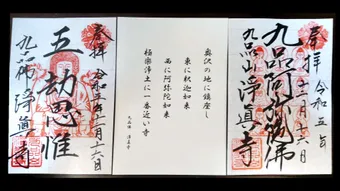 奉拝 令和五年
九品阿弥陀佛
九品山 浄真寺
奥沢の地に鎮座し
東に釈迦如来
西に阿弥陀如来
極楽浄土に一番近い寺
九品佛 浄真寺
奉拝 令和五年
五劫思惟
九品佛 浄真寺